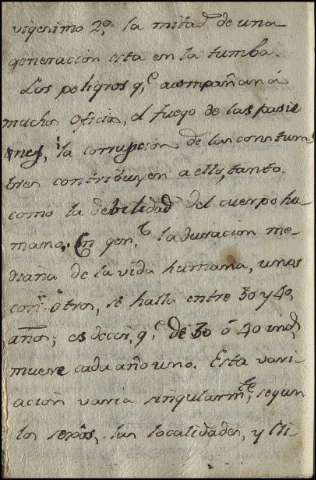 vigesimo 2º. la mitad de una
generacion esta en la tumba.
Los peligros q.e acompañan a
muchos oficios, el fuego de las pasio
nes, la corrupcion de las costum
bres contribuyen a ello, tanto
como la debilidad del cuerpo hu-
mano. En gen.l la duracion me-
diana de la vida humana, unos
con otros, se halla entre 30 y 40
años; es decir, q.e de 30 ó 40 ind.s
muere cada año uno. Esta vari-
acion varia singularm.te, segun
los sexôs, las localidades, y cli-